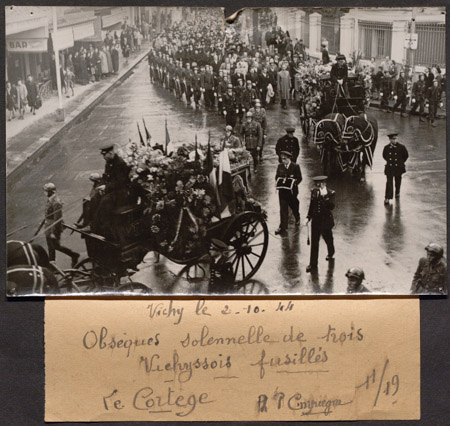 BAD
Vichy le 2-10-44
Obsèques solennelle de trois
Vichyssois fusillés
Le Cortège
11/19